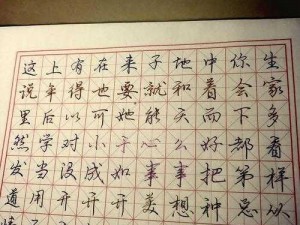 这上有在来子地中你生
说年得也要就和着会家
里后以可她能天而下多
然学对小于心么好都看
发当没成如事事把第样
道用开开美想种总从